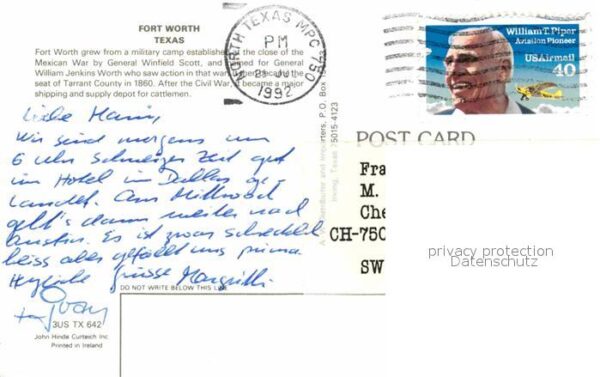 FORT WORTH
TEXAS
Fort Worth grew from a military camp established at the close of the
Mexican War by General Winfield Scott, and named for General
William Jenkins Worth who saw action in that war. became the
seat of Tarrant County in 1860. After the Civil War, it became a major
shipping and supply depot for cattlemen.
WORTH TEXAS MPC 750
PM
1992
William T. Piper
Aviation Pioneer
USAirmail
40
Liebe
Wir sind morgens um
6 Uhr Schweizer Zeit gut
im Hotel in Dallas ge-
landet. Am Mittwoch
geht's dann weiter nach
Austin. Es ist zwar schrecklich
heiss aber gefällt uns prima.
Herzliche Grüsse
POST CARD
Distributor and Importers, P.O. Box
Irving, Texas 75015-4123
Fra
M.
Che
CH-750
SW
privacy protection
Datenschutz
DO NOT WRITE BELOW THIS LINE
3US TX 642
John Hinde Curteich Inc.
Printed in Ireland